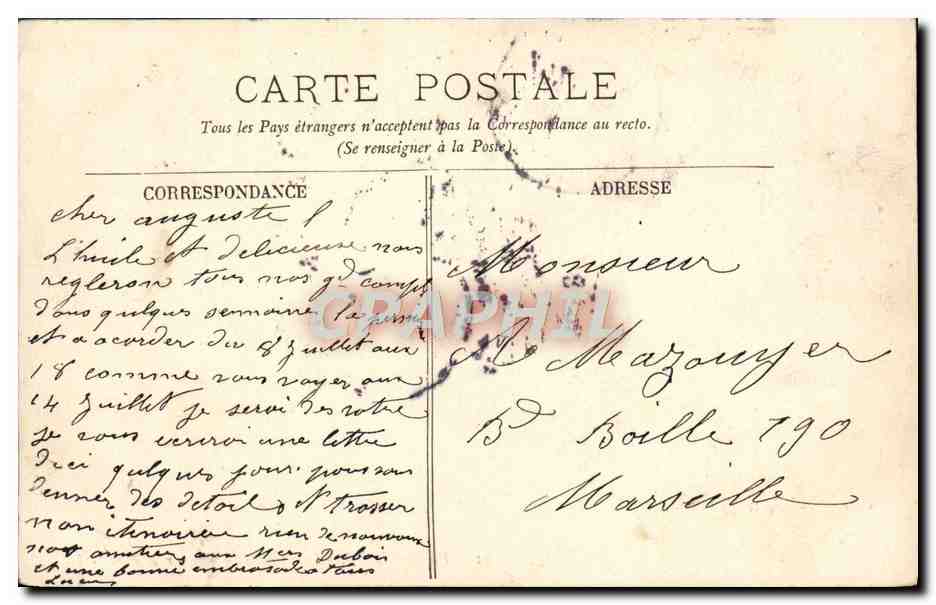 CARTE POSTALE
Tous les Pays étrangers n'acceptent pas la Correspondance au recto.
(Se renseigner à la Poste).
CORRESPONDANCE
cher auguste
L'huile et delicieuse nous
regleron tous nos gd compt
dans quelques semaines la perm
et a acorder du 8 juillet aux
18 comme vous voyer aux
14 juillet je serai des votre
je vous ecrirai une lettre
dici quelques jour pour vous
denner des detail
rien de nouveau
aux Mrs Dubois
et une bonne embrasade a tous
ADRESSE
Monsieur
A Mazouyer
Bd Boille 190
Marseille
CPAPHIL